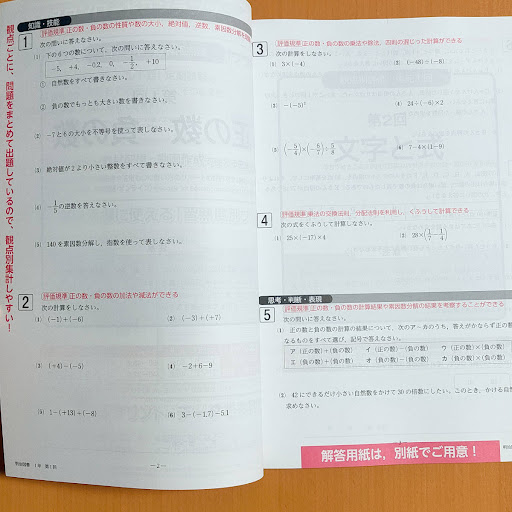 観点ごとに、問題をまとめて出題しているので、観点別集計しやすい！
知識・技能
1
評価規準 正の数・負の数の性質や数の大小、絶対値、逆数、素因数分解を
次の問いに答えなさい。
(1) 下の6つの数について、次の問いに答えなさい。
-5, +4, -0.2, 0, -1/2, +10
① 自然数をすべて書きなさい。
② 負の数でもっとも大きい数を書きなさい。
(2) -7と6の大小を不等号を使って表しなさい。
(3) 絶対値が2より小さい整数をすべて書きなさい。
(4) -1/5の逆数を答えなさい。
(5) 140を素因数分解し、指数を使って表しなさい。
2
評価規準 正の数・負の数の加法や減法ができる
次の計算をしなさい。
(1) (-1)+(-6)
(2) (-3)+(+7)
(3) (+4)-(-5)
(4) -2+6-9
(5) 1-(+13)+(-8)
(6) 3-(-1.7)-5.1
-2-
3
評価規準 正の数・負の数の乗法や除法、四則の混じった計算ができる
次の計算をしなさい。
(1) 3×(-4)
(2) (-48)÷(-8)
(3) -(-5)²
(4) 24÷(-6)×2
(5) (-5/4)×(-5/7)÷5/8
(6) 7-4×(11-9)
4
評価規準 乗法の交換法則、分配法則を利用し、くふうして計算できる
次の式をくふうして計算しなさい。
(1) 25×(-17)×4
(2) 28×(1/7-1/4)
思考・判断・表現
5
評価規準 正の数・負の数の計算結果や素因数分解の結果を考察することができる
次の問いに答えなさい。
(1) 正の数と負の数の計算の結果について、次のア〜カのうち、答えがかならず正の数
なるものをすべて選び、記号で答えなさい。
ア (正の数)+(負の数) イ (正の数)-(負の数) ウ (正の数)×(負の
エ (負の数)+(負の数) オ (負の数)-(負の数) カ (負の数)×(負の
(2) 42にできるだけ小さい自然数をかけて30の倍数にしたい。このとき、かける自然
求めなさい。
解答用紙は、別紙でご用意！